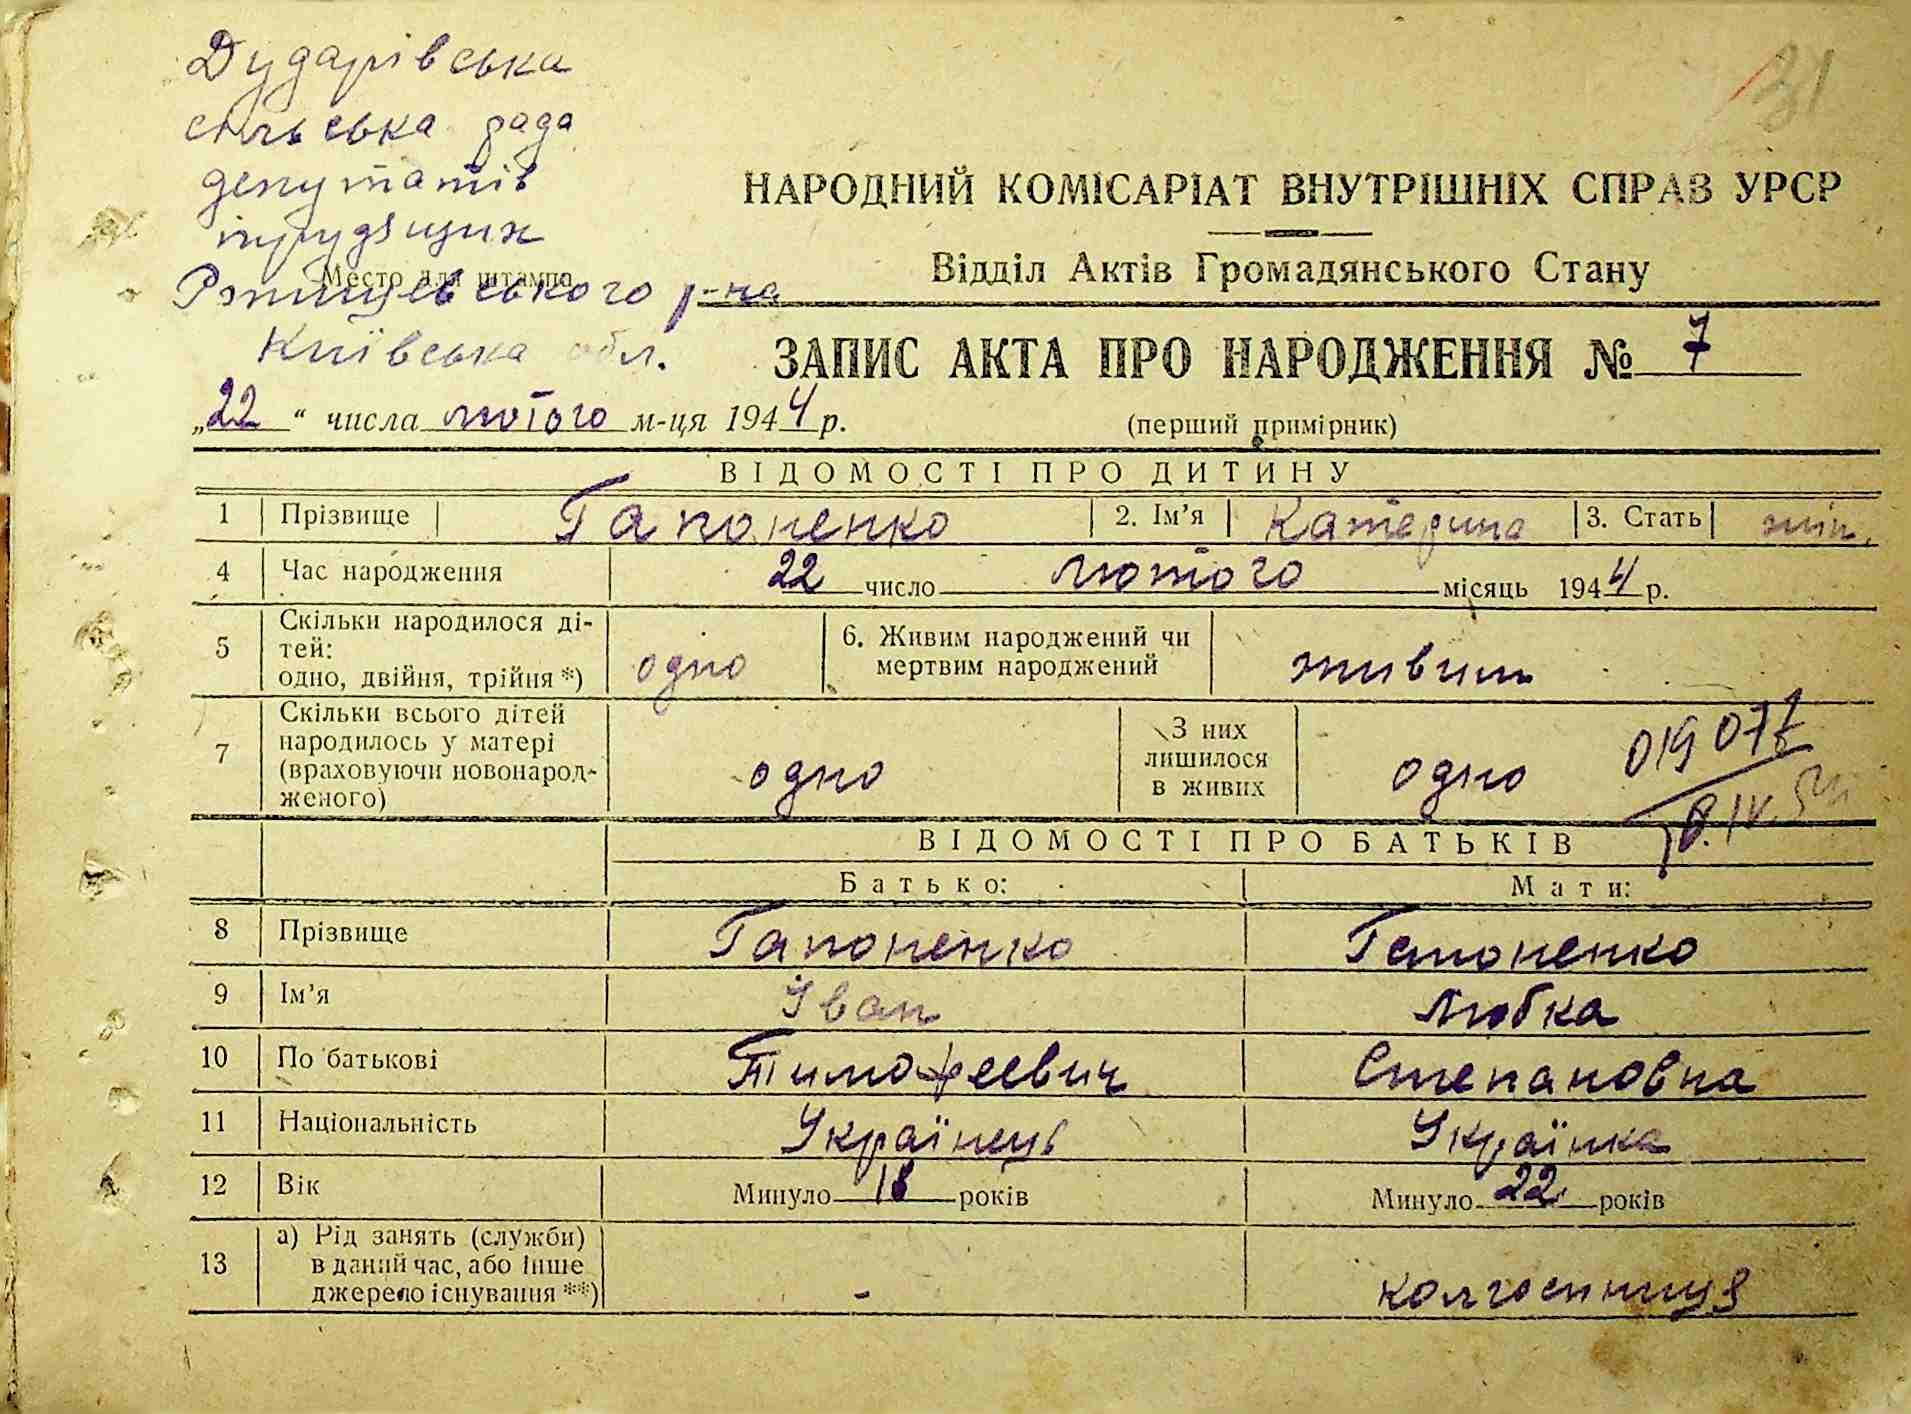 Дударівська
сільська рада
депутатів
трудящих
Место для штампа
Ржищевського р-на
Київська обл.
31
НАРОДНИЙ КОМІСАРІАТ ВНУТРІШНІХ СПРАВ УРСР
Відділ Актів Громадянського Стану
ЗАПИС АКТА ПРО НАРОДЖЕННЯ № 7
„22“ числа лютого м-ця 1944 р.
(перший примірник)
ВІДОМОСТІ ПРО ДИТИНУ
1 Прізвище Гапоненко 2. Ім’я Катерина 3. Стать жін.
4 Час народження 22 число лютого місяць 1944 р.
5 Скільки народилося ді-
тей:
одно, двійня, трійня *) одно 6. Живим народжений чи
мертвим народжений живим
7 Скільки всього дітей
народилось у матері
(враховуючи новонарод-
женого) одно З них
лишилося
в живих одно
ВІДОМОСТІ ПРО БАТЬКІВ
Батько: Мати:
8 Прізвище Гапоненко Гапоненко
9 Ім’я Іван Любка
10 По батькові Тимофеевич Степановна
11 Національність Українець Українка
12 Вік Минуло 18 років Минуло 22 років
13 а) Рід занять (служби)
в даний час, або інше
джерело існування **) - колгоспниця